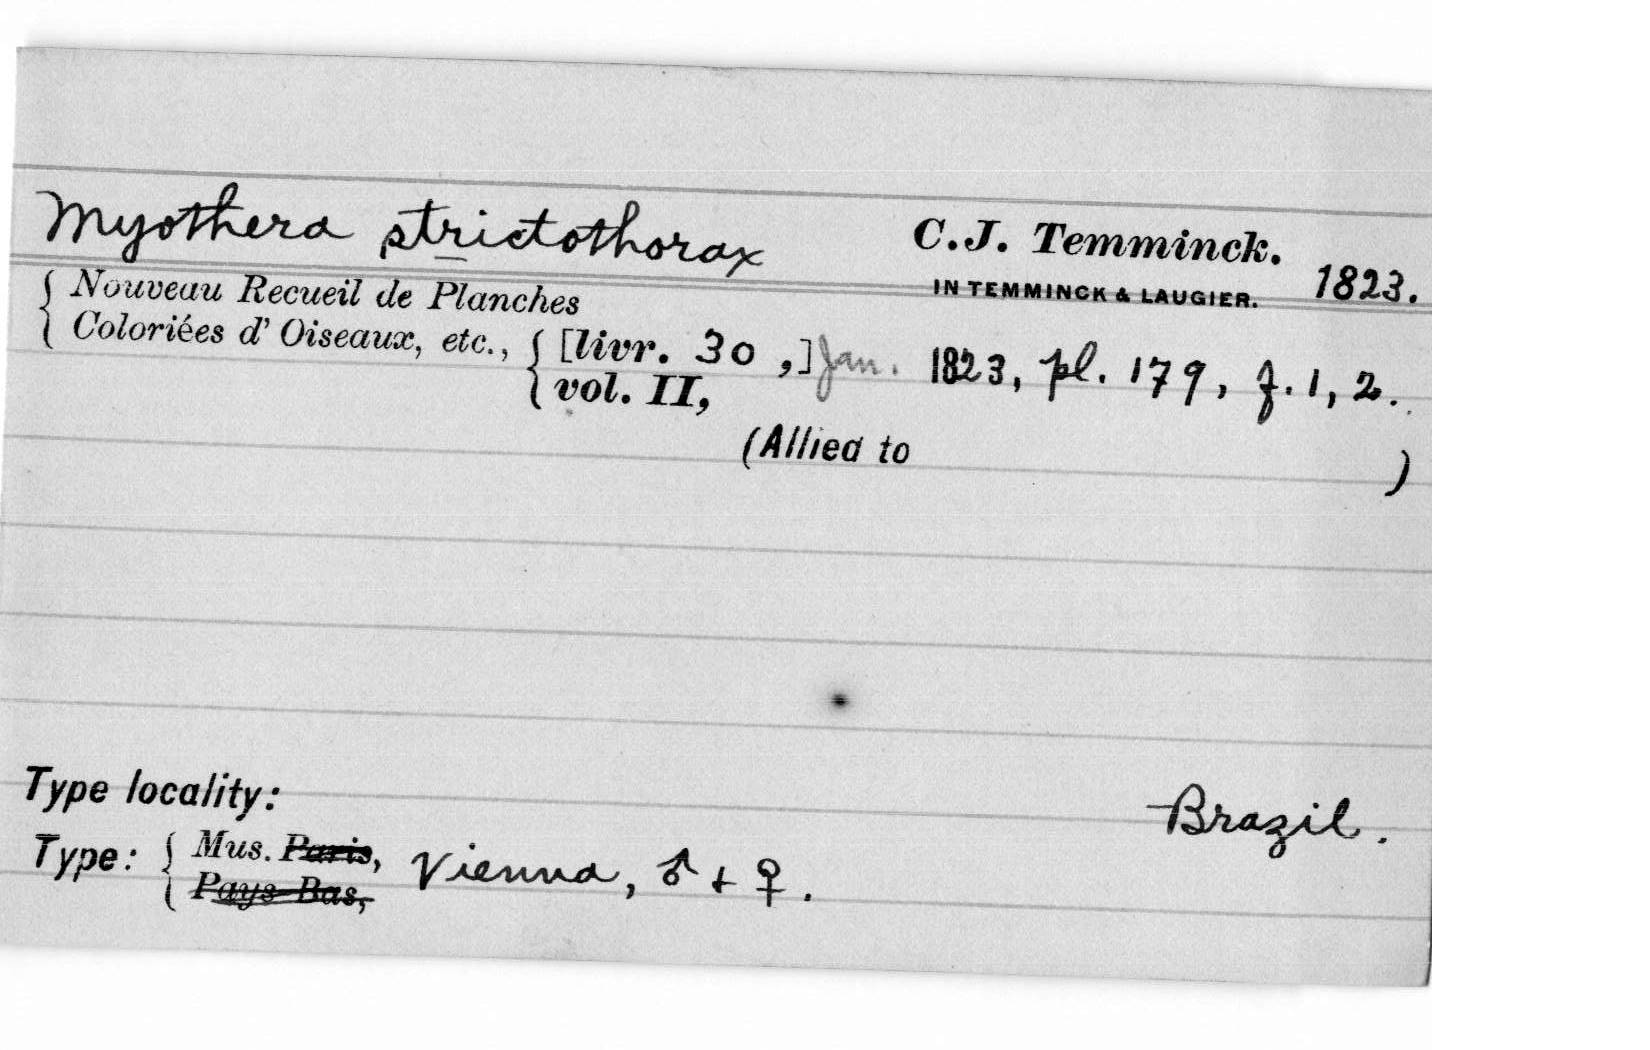 Myothera strictothorax C.J. Temminck.
IN TEMMINCK & LAUGIER. 1823.
{ Nouveau Recueil de Planches
Coloriées d' Oiseaux, etc., { [livr. 30 ,] Jan. 1823, pl. 179, f. 1, 2.
vol. II,
(Allied to )
Type locality: Brazil.
Type: { Mus. Paris, Vienna, ♂ + ♀.
Pays-Bas,